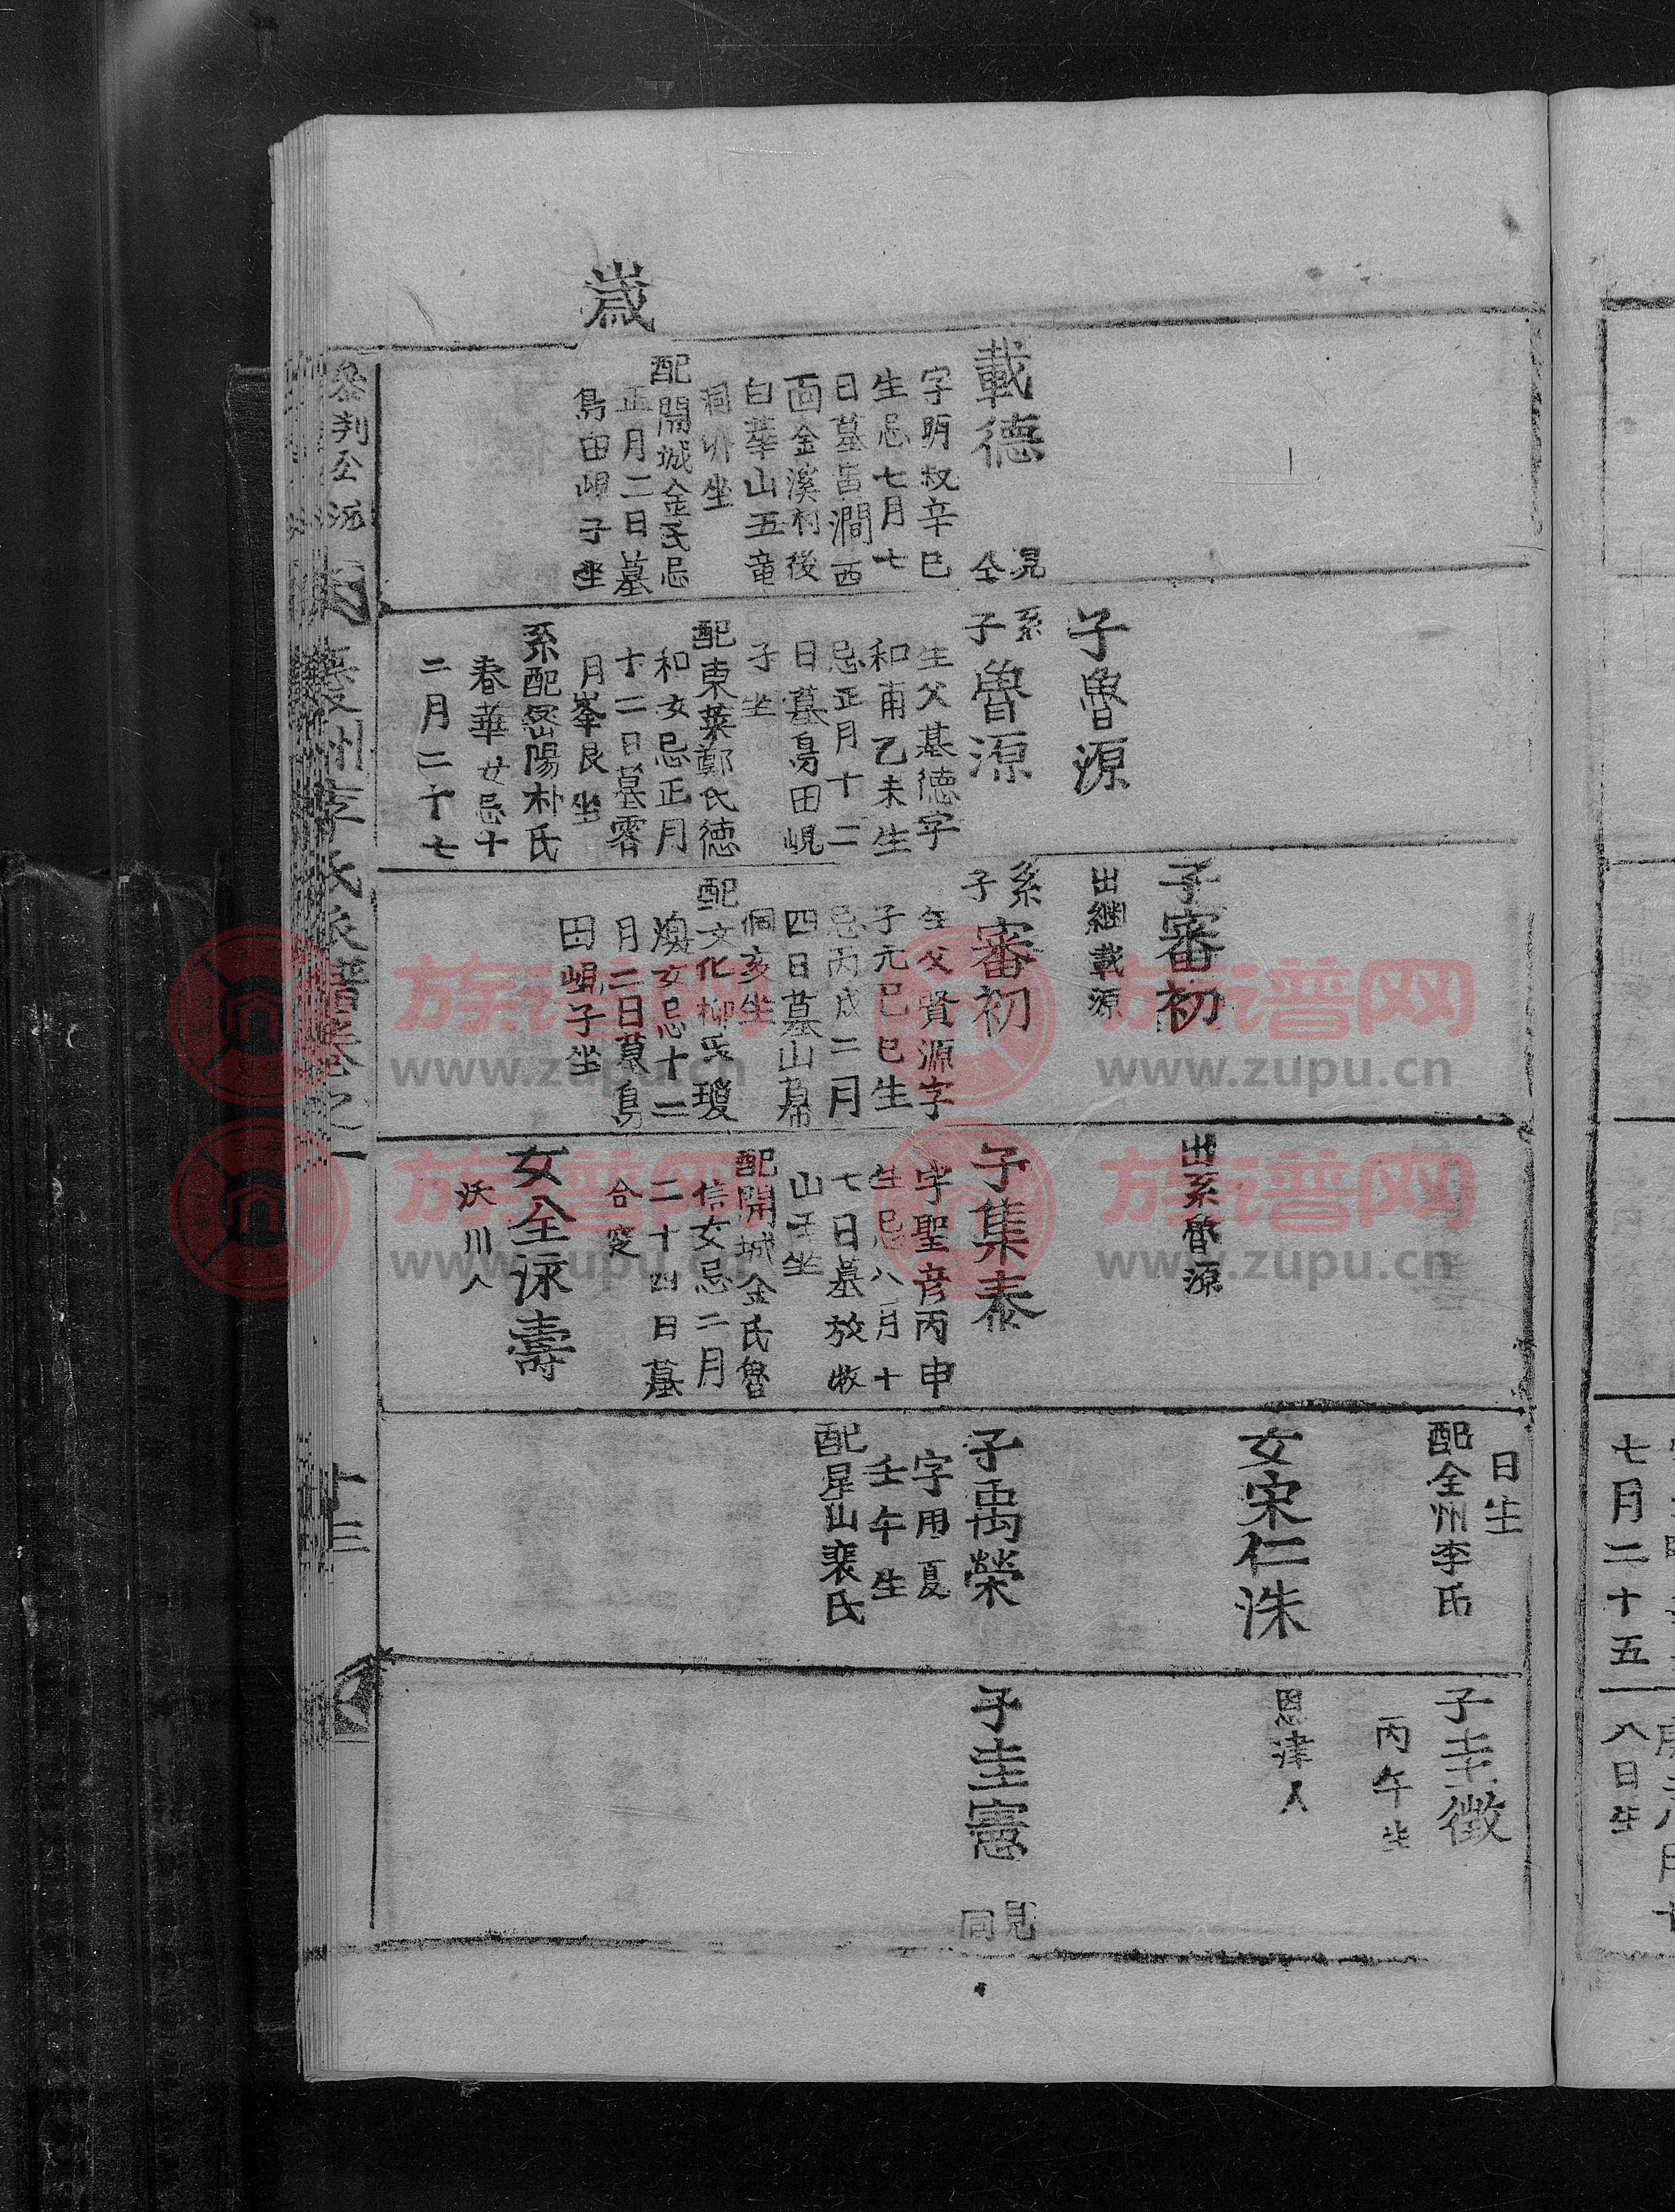 歲
載德
見
仝
字明叔辛巳
生忌七月七
日墓邑澗西
面金溪村後
白華山五竜
洞
坐
配開城金氏忌
正月二日墓
鳥田峴子坐
子魯源
系
子
魯源
生父基德字
和甫乙未生
忌正月十二
日墓鳥田峴
子坐
配東萊鄭氏德
和女忌正月
十二日墓
月峯艮坐
系配密陽朴氏
春華女忌十
二月二十七
子審初
出繼載源
系
子
審初
生父賢源字
子元己巳生
忌丙戌二月
四日墓山幕
洞亥坐
配文化柳氏瓊
渙女忌十二
月二日墓鳥
田峴子坐
出系魯源
子集泰
字聖彦丙申
生忌八月十
七日墓放牧
山
坐
配開城金氏魯
信女忌二月
二十四日墓
合窆
女全泳壽
沃川人
日生
配全州李氏
女宋仁洙
子禹榮
字用夏
壬午生
配星山裵氏
子圭徵
丙午生
恩津人
子圭憲
見
同
參判公派
慶州李氏派譜卷之一
十三
七月二十五
八日生
族谱网
www.zupu.cn
族谱网
www.zupu.cn
族谱网
www.zupu.cn
族谱网
www.zupu.cn